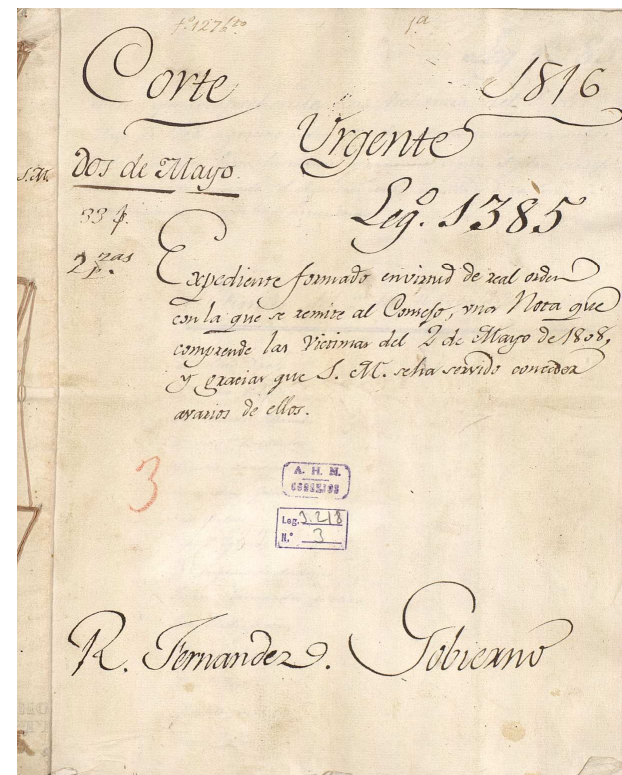 fº. 127 bto. 1ª
Corte 1816
Urgente
S.M.
Dos de Mayo
33 f.
Legº. 1385
2 pzas.
Expediente formado envirtud de real orden
con la que se remite al Consejo, una Nota que
comprende las Victimas del 2 de Mayo de 1808,
y gracias que S. M. seha servido conceder
avarios de ellos.
3
A. H. N.
CONSEJOS
Leg. 3.218
N.º 3
R. Fernandez. Gobierno